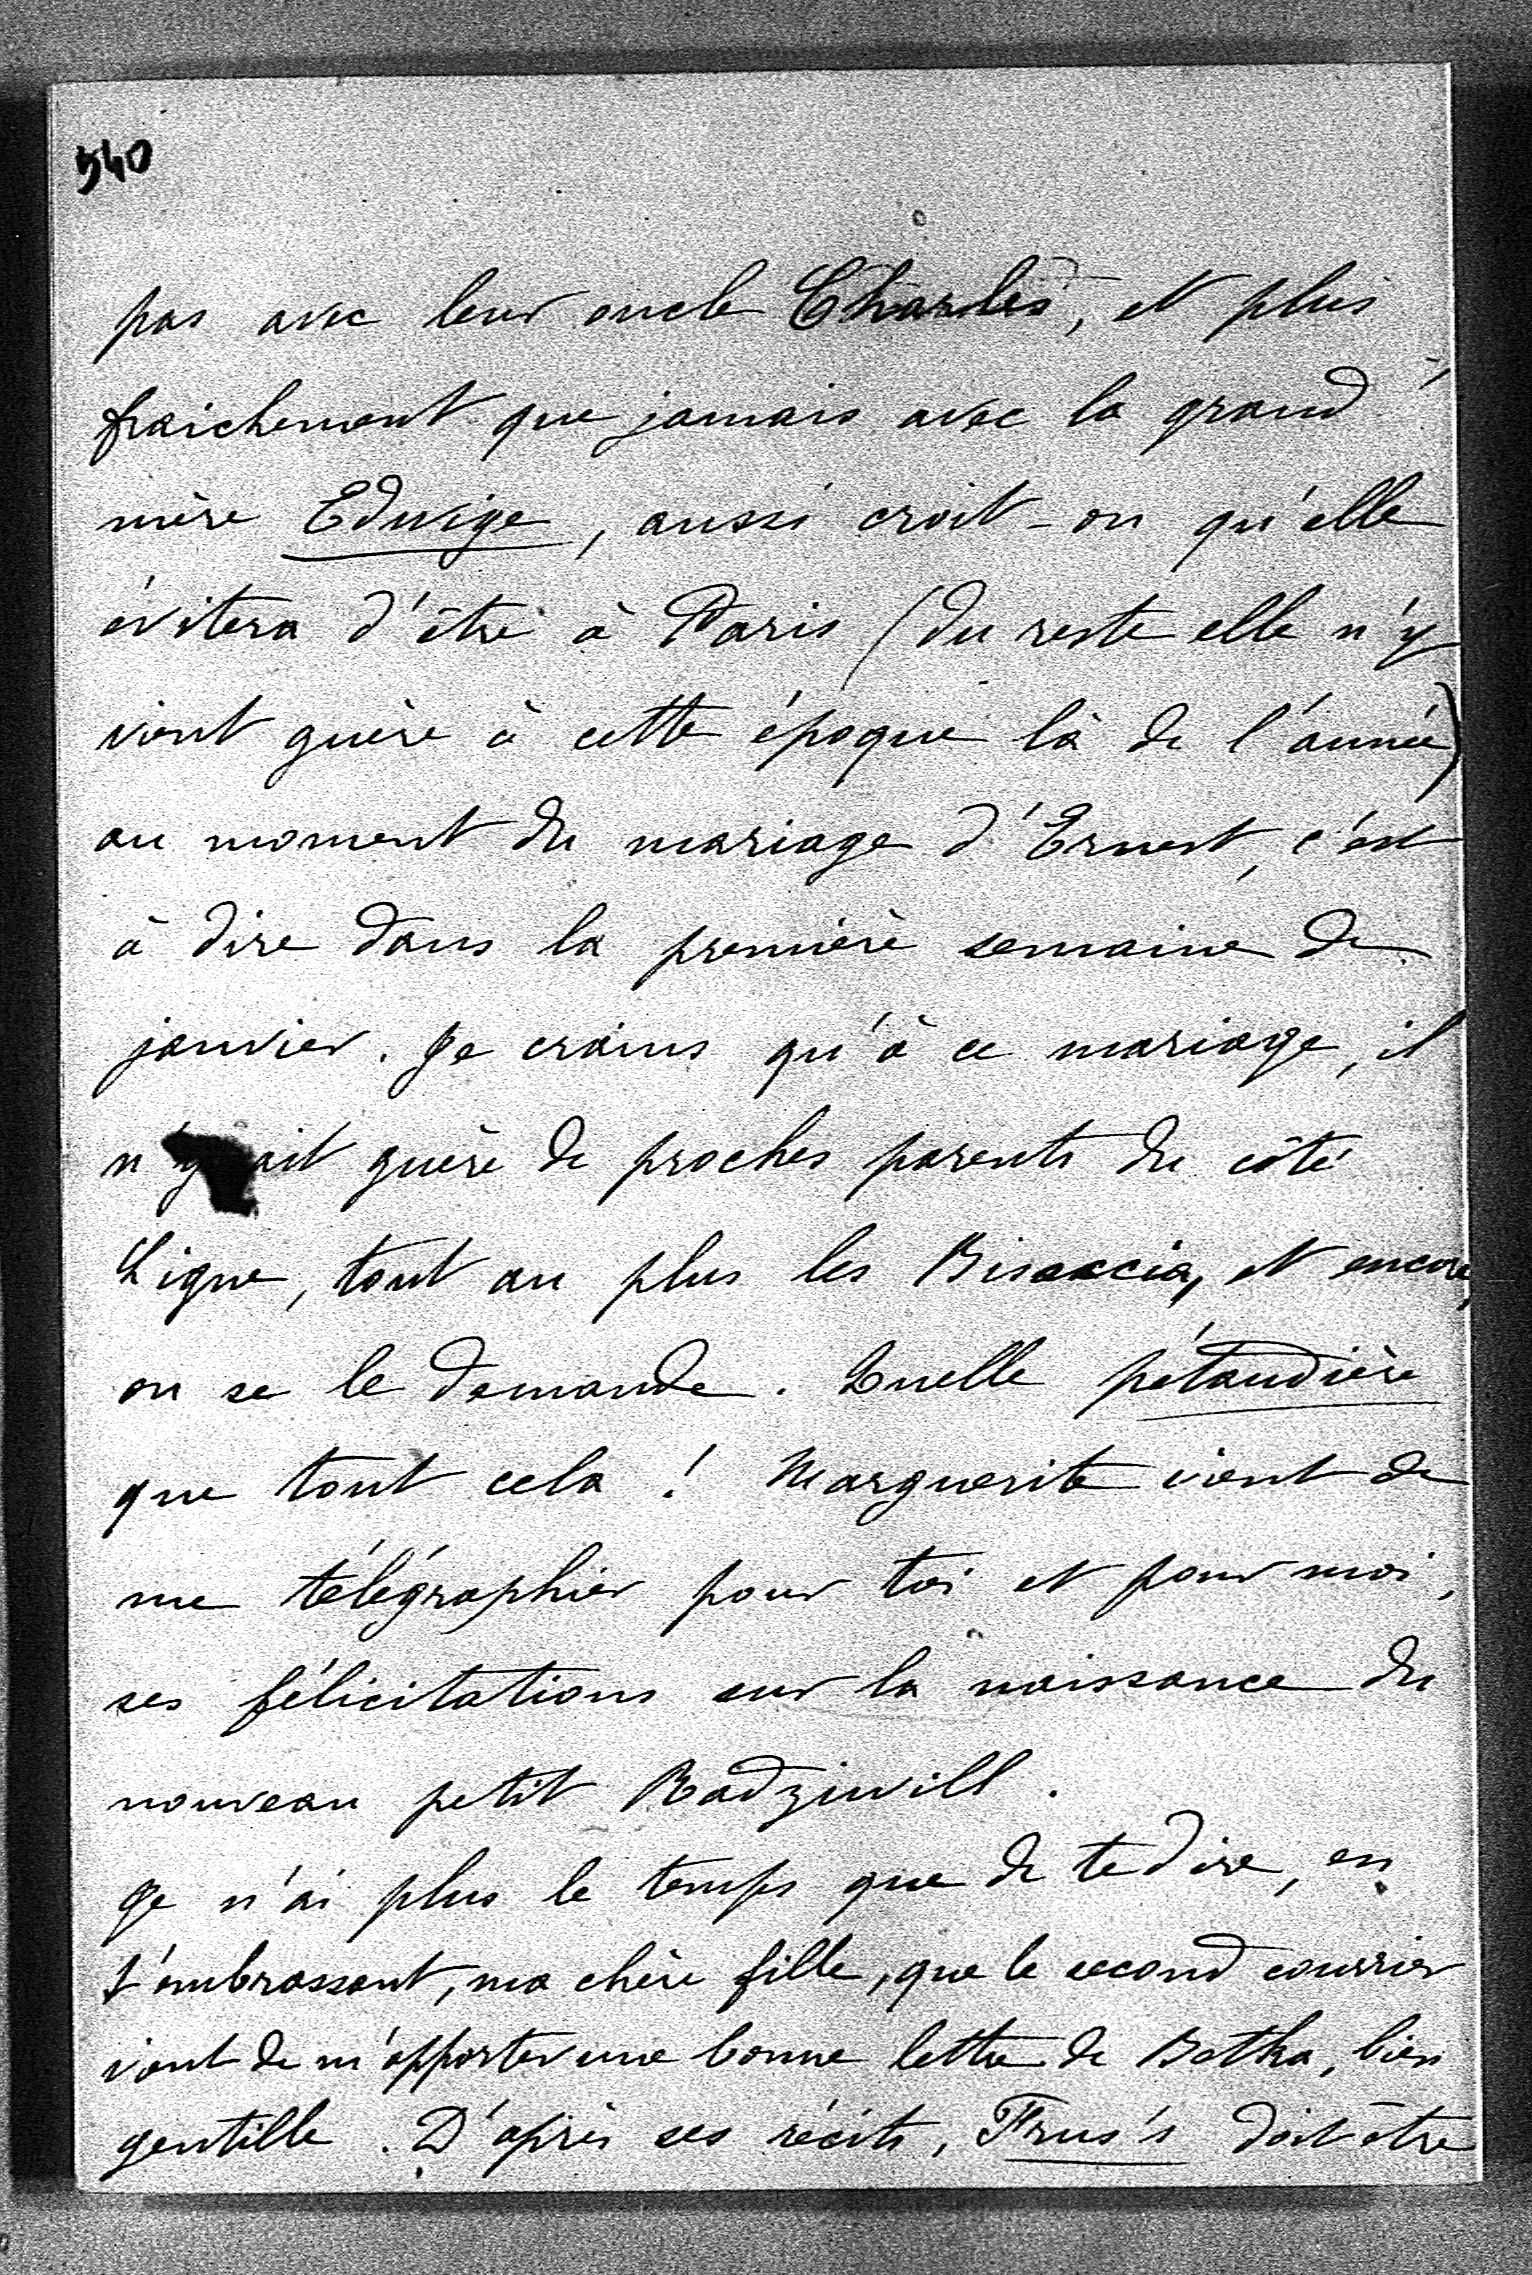 540
pas avec leur oncle Charles, et plus
fraichement que jamais avec la grand'
mère Edwige, aussi croit-on qu'elle
évitera d'être à Paris (du reste elle n'y
vient guère à cette époque là de l'année)
au moment du mariage d'Ernest, c'est
à dire dans la première semaine de
janvier. Je crains qu'à ce mariage, il
n'y ait guère de proches parents du côté
Ligne, tout au plus les Bisaccia, et encore,
on se le demande. Quelle pétaudière
que tout cela ! Marguerite vient de
me télégraphier pour toi et pour moi,
ses félicitations sur la naissance du
nouveau petit Radziwill.
Je n'ai plus le temps que de te dire, en
t'embrassant, ma chère fille, que le second courrier
vient de m'apporter une bonne lettre de Betka, bien
gentille. D'après ses récits, Frus's doit être